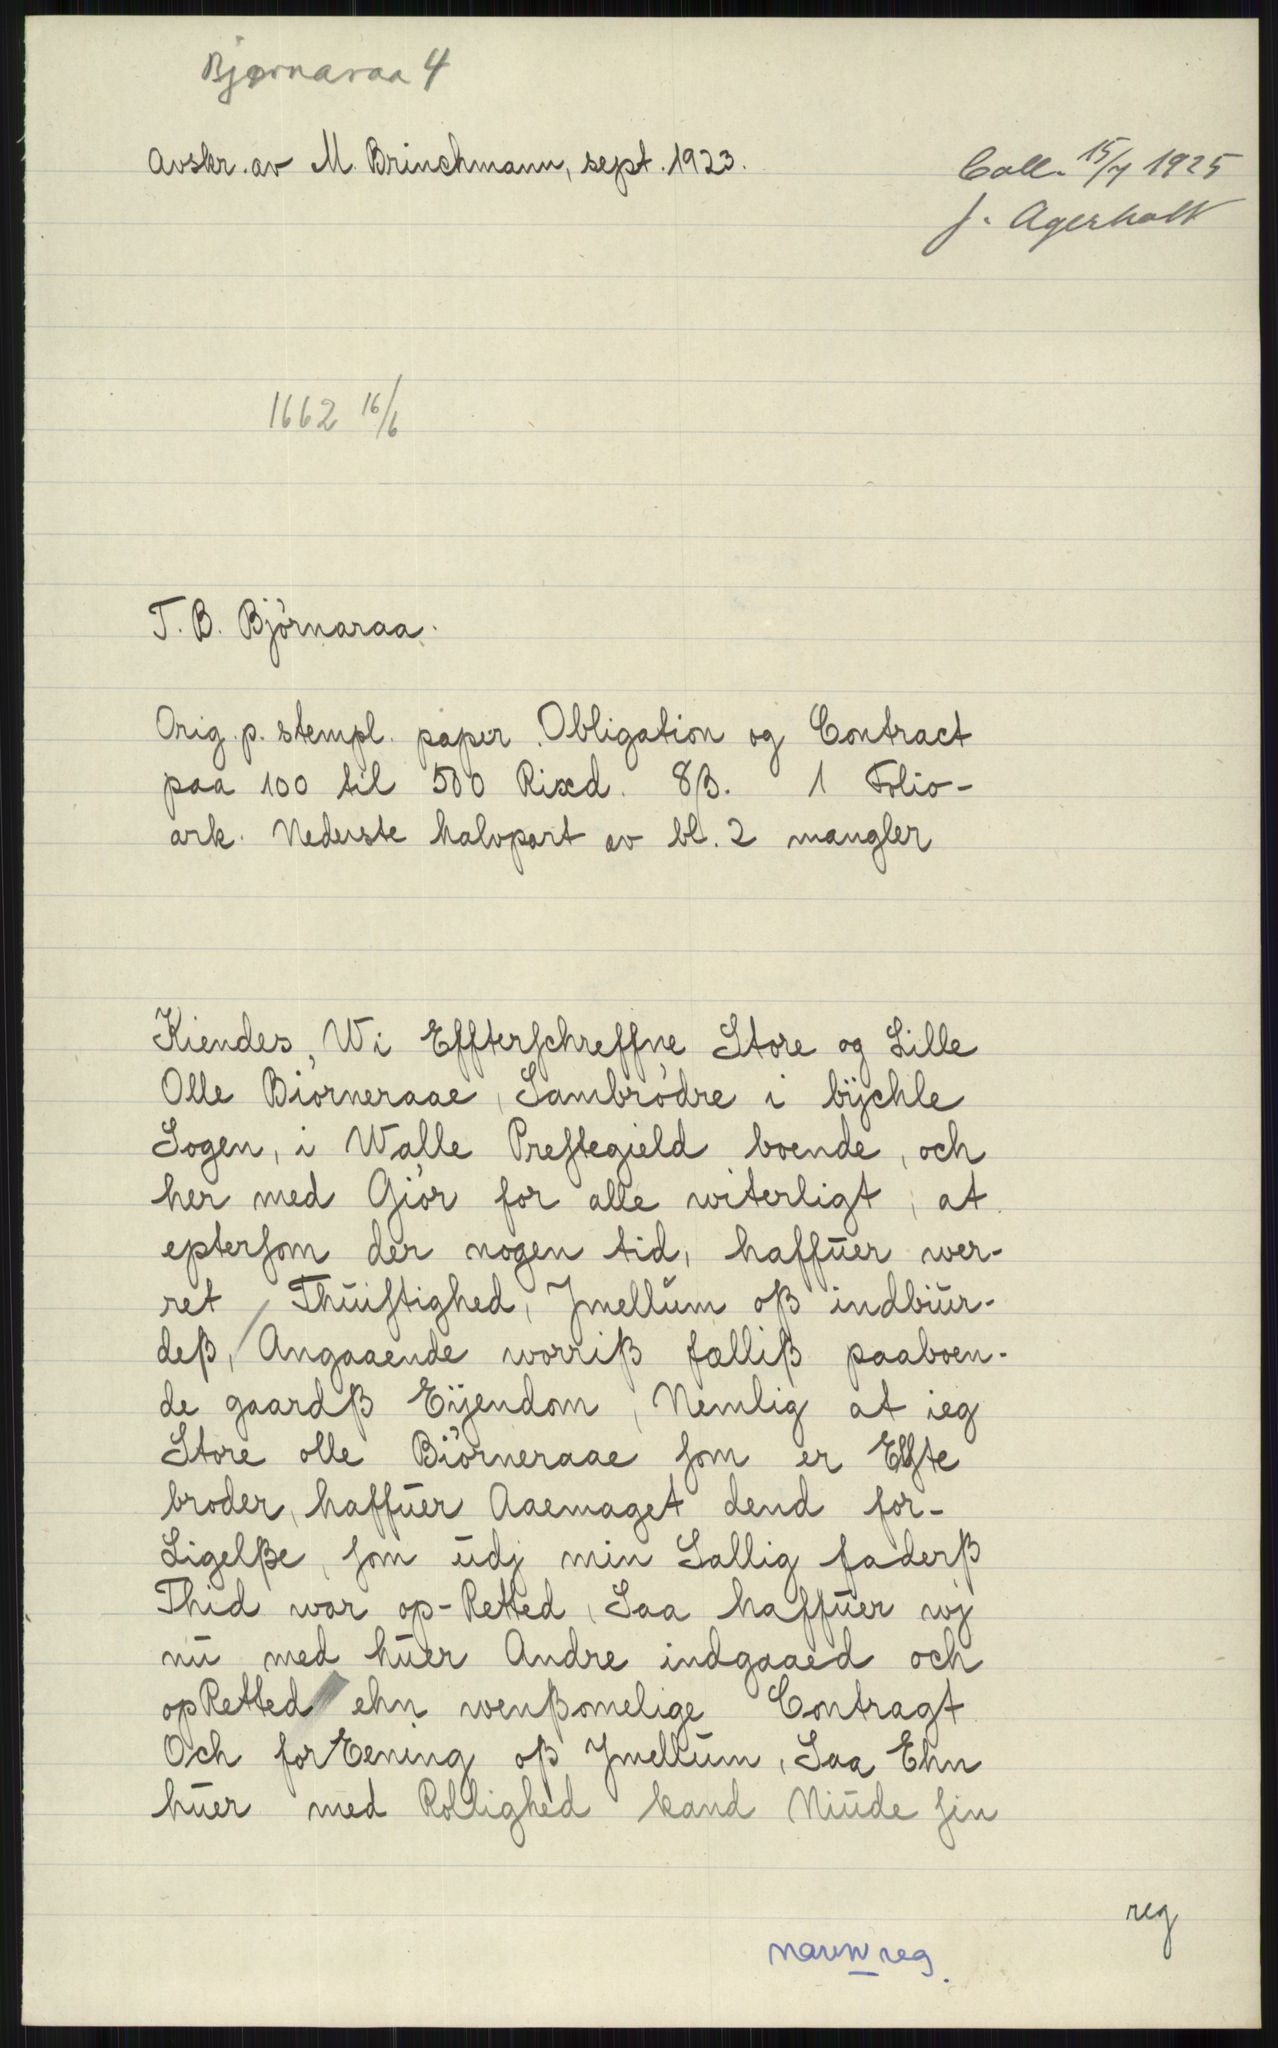 Bjørnaraa 4
Avskr. av M. Brinchmann, sept. 1923.
Coll. 15/7 1925
J. Agerholt
1662 16/6
T. B. Bjørnaraa.
Orig. p. stempl. papir. Obligation og Contract
paa 100 til 500 Rixd. 8 β. 1 Folio-
ark. Nederste halvpart av bl. 2 mangler
Kiendes, Wi Effterschreffne Store og Lille
Olle Biörneraae, Sambrödre i bÿchle
Sogen, i Walle Prestegield boende, och
her med Giör for alle witerligt, at
eptersom der nogen tid, haffūer wer-
ret / Thūistighed, Jmellūm oß indbiūr-
deß, / Angaaende worriß fælliß paaboen-
de gaardß Eÿendom, Nemlig at ieg
Store olle Biörneraae som er Elste
broder, haffūer Aaemaget dend for-
Ligelße, som ūdj min Sallig faderß
Thid war op-Retted, Saa haffūer wj
nū med hūer Andre indgaaed och
opRetted ehn wenßomelige Contragt
Och forEening oß Jmellūm, Saa Ehn
hūer med Rollighed kand Niūde sin
reg
navnreg.